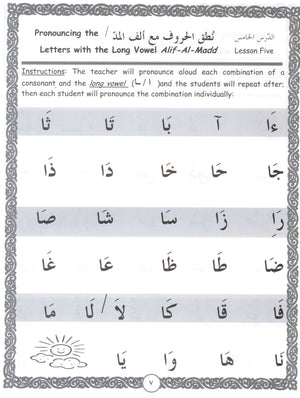 الدرس الخامس
Lesson Five
Pronouncing the / نُطق الحروف مع ألف المدّ
Letters with the Long Vowel Alif-Al-Madd
Instructions: The teacher will pronounce aloud each combination of a
consonant and the long vowel (ـَا / ا) and the students will repeat after;
then each student will pronounce the combination individually:
ءَا آ بَا تَا ثَا
جَا حَا خَا دَا ذَا
رَا زَا سَا شَا صَا
ضَا طَا ظَا عَا غَا
فَا قَا كَا لاَ / لَا مَا
نَا هَا وَا يَا
٧